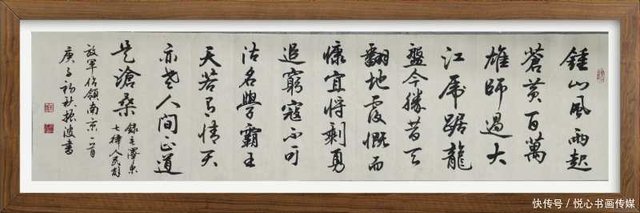 鍾山風雨起
蒼黃百萬
雄師過大
江虎踞龍
盤今勝昔天
翻地覆慨而
慷宜將剩勇
追窮寇不可
沽名學霸王
天若有情天
亦老人間正道
是滄桑
錄毛澤東
七律人民解
放軍佔領南京一首
庚子初秋振波書
快传号/悦心书画传媒